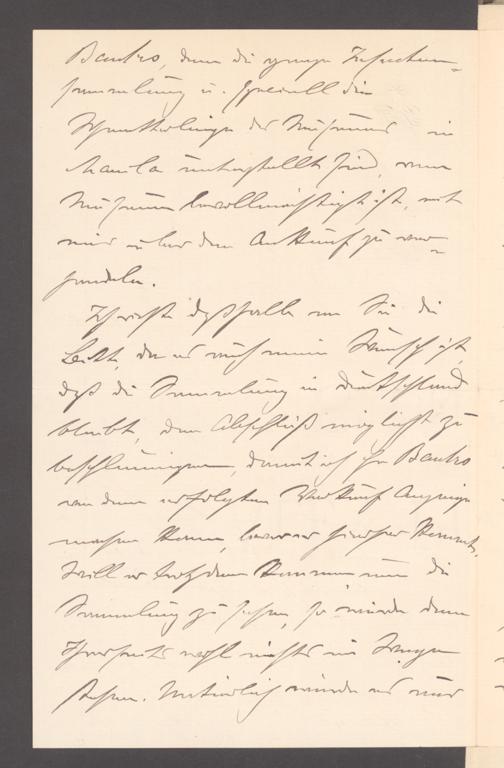 Banks, dem die ganze Insecten-
sammlung u. speciell die
Schmetterlinge des Museums in
Manila unterstellt sind, vom
Museum bevollmächtigt ist, mit
mir über den Ankauf zu ver-
handeln.
Ich richte deßhalb an Sie die
Bitte, da es auch mein Wunsch ist,
daß die Sammlung in Deutschland
bleibt, den Abschluß möglichst zu
beschleunigen, damit ich Hr Banks
von dem erfolgten Verkauf Anzeige
machen kann, bevor er hierher kommt.
Will er trotzdem kommen um die
Sammlung zu sehen, so würde dem
Ihrerseits wohl nichts im Wege
stehen. Natürlich würde es mir